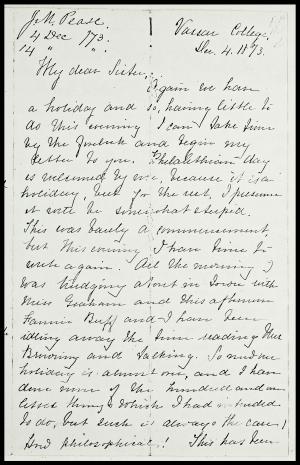 J.M. Pease
4 Dec '73.
14 " " .
Vassar College,
Dec. 4. 1873.
My dear Sister,
Again we have
a holiday and so, having little to
do this evening I can take time
by the forelock and begin my
letter to you. Philalethean day
is welcomed by me, because it is a
holiday, but for the rest, I presume
it will be somewhat stupid.
This was barely a commencement,
but this evening I have time to
write again. All the morning I
was trudging about in town with
Miss Graham and this afternoon
Fannie Buff and I have been
idling away the time reading Mrs
Browning and talking. So now my
holiday is almost over, and I have
done none of the hundred and one
little things which I had intended
to do, but such is always the case!
How philosophical! This has been